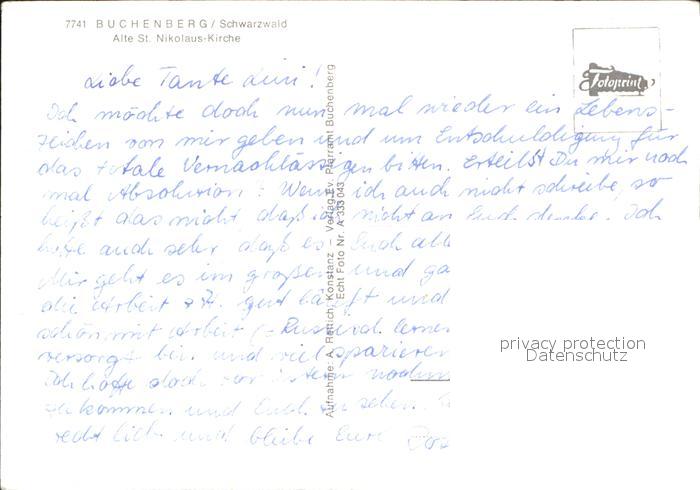 7741 BUCHENBERG / Schwarzwald
Alte St. Nikolaus-Kirche
Fotoprint
Liebe Tante Lini!
Ich möchte doch nun mal wieder ein Lebens-
zeichen von mir geben und um Entschuldigung für
das totale Vernachlässigen bitten. Erteilst Du mir noch
mal Absolution? Wenn ich auch nicht schreibe, so
heißt das nicht, daß ich nicht an Euch denke. Ich
hoffe auch sehr daß es Euch alle
Mir geht es im großen und ga
die Arbeit z.Zt. gut läuft und
schön mit Arbeit
versorgt bin und viel spazieren
Ich hoffe doch vor Ostern nochm
zu kommen und Euch zu sehen.
recht lieb und bleibe Eure
Aufnahme: A. Rettich, Konstanz – Verlag Ev. Pfarramt Buchenberg
Echt Foto Nr. A 333 043
privacy protection
Datenschutz